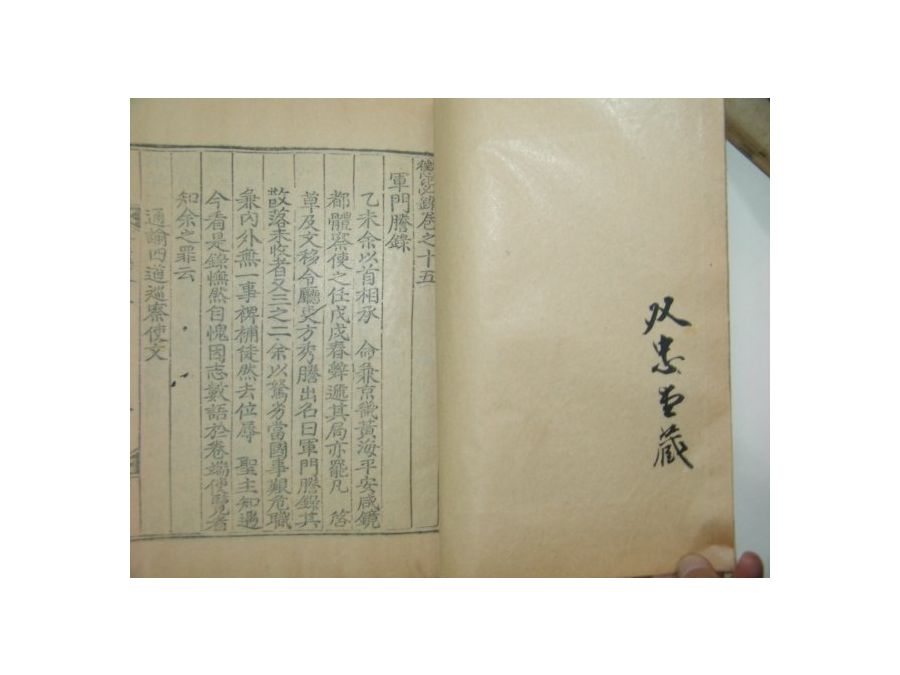 懲毖錄卷之十五
軍門謄錄
乙未余以首相承 命兼京畿黃海平安咸鏡
都體察使之任戊戌春辭遞其局亦罷凡 啓
草及文移令廳吏方秀謄出名曰軍門謄錄其
散落未收者又三之二余以駑劣當國事艱危職
兼內外無一事裨補徒然去位辱 聖主知遇
今看是錄憮然自愧因志數語於卷端使覽者
知余之罪云
通諭四道巡察使文
双忠堂藏